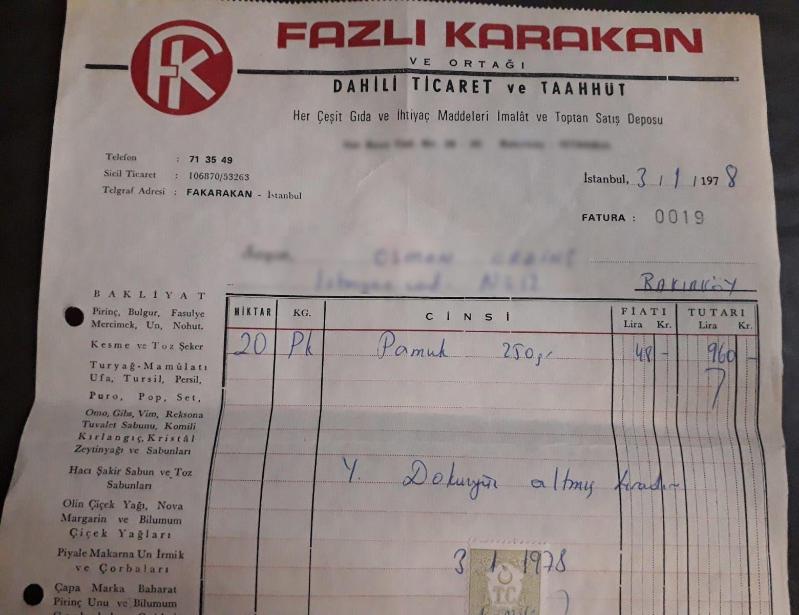 FK
FAZLI KARAKAN
VE ORTAĞI
DAHİLİ TİCARET ve TAAHHÜT
Her Çeşit Gıda ve İhtiyaç Maddeleri İmalât ve Toptan Satış Deposu
Telefon : 71 35 49
Sicil Ticaret : 106870/53263
Telgraf Adresi : FAKARAKAN - İstanbul
İstanbul, 3 / 1 / 1978
FATURA : 0019
BAKIRKÖY
BAKLİYAT
Pirinç, Bulgur, Fasulye
Mercimek, Un, Nohut.
Kesme ve Toz Şeker
Turyağ-Mamûlatı
Ufa, Tursil, Persil,
Puro, Pop, Set,
Omo, Gibs, Vim, Reksona
Tuvalet Sabunu, Komili
Kırlangıç, Kristâl
Zeytinyağı ve Sabunları
Hacı Şakir Sabun ve Toz
Sabunları
Olin Çiçek Yağı, Nova
Margarin ve Bilumum
Çiçek Yağları
Piyale Makarna Un İrmik
ve Çorbaları
Çapa Marka Baharat
Pirinç Unu ve Bilumum
MİKTAR KG. CİNSİ FİATI TUTARI
Lira Kr. Lira Kr.
20 Pk Pamuk 250gr 48 - 960 -
Y. Dokuzyüz altmış liradır
3 1 1978
T.C.